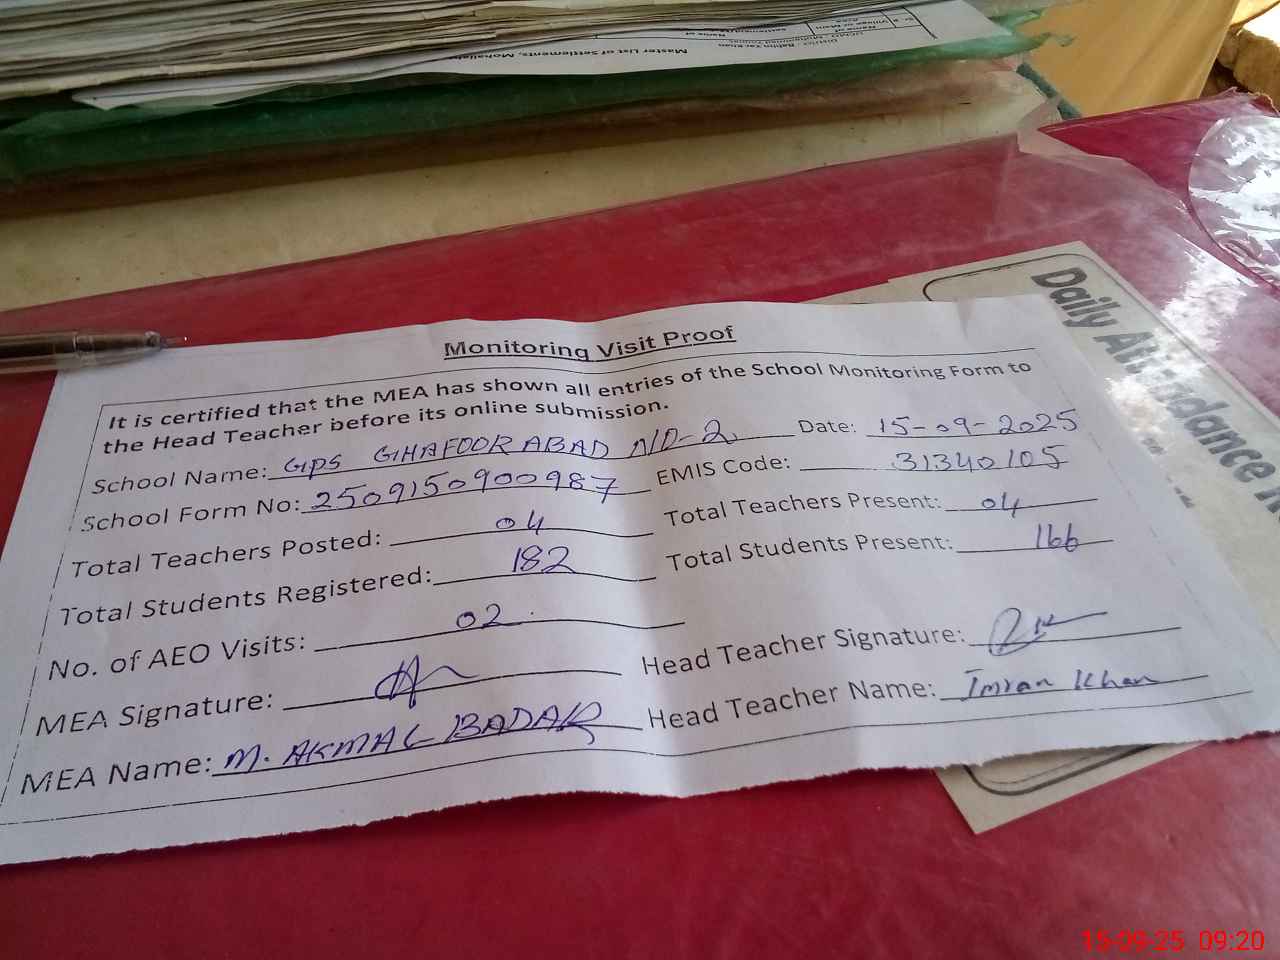 Master List of Settlements, Mohallahs
District - Rahim Yar Khan
Name of
Village or Main
Sr #
Monitoring Visit Proof
It is certified that the MEA has shown all entries of the School Monitoring Form to
the Head Teacher before its online submission.
School Name: GPS GHAFOOR ABAD NO-2 Date: 15-09-2025
School Form No: 2509150900987 EMIS Code: 31340105
Total Teachers Posted: 04 Total Teachers Present: 04
Total Students Registered: 182 Total Students Present: 166
No. of AEO Visits: 02
MEA Signature: Head Teacher Signature:
MEA Name: M. AKMAL BADAR Head Teacher Name: Imran Khan
Daily Attendance
15-09-25 09:20